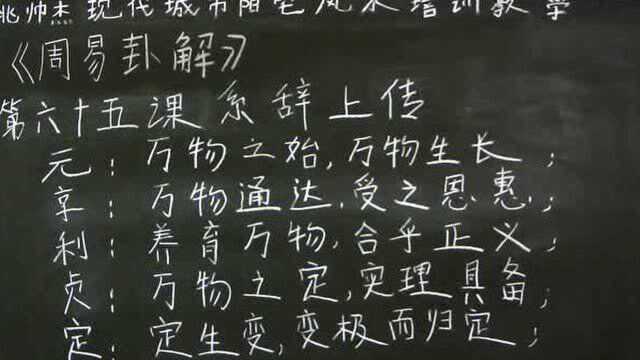 兆帅杰现代城市阳宅风水培训教学
《周易卦解》
第六十五课 系辞上传
元：万物之始，万物生长；
享：万物通达，受之恩惠；
利：养育万物，合乎正义；
贞：万物之定，实理具备；
定：定生变，变极而归定；